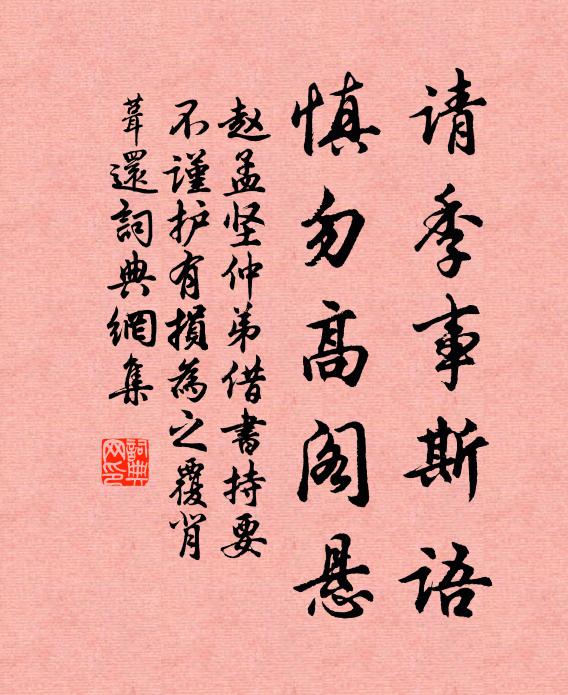 请季事斯语
慎勿高阁悬
赵孟坚仲弟借书持要
不谨护有損為之覆肖
葺還詞典網集
詞典网印